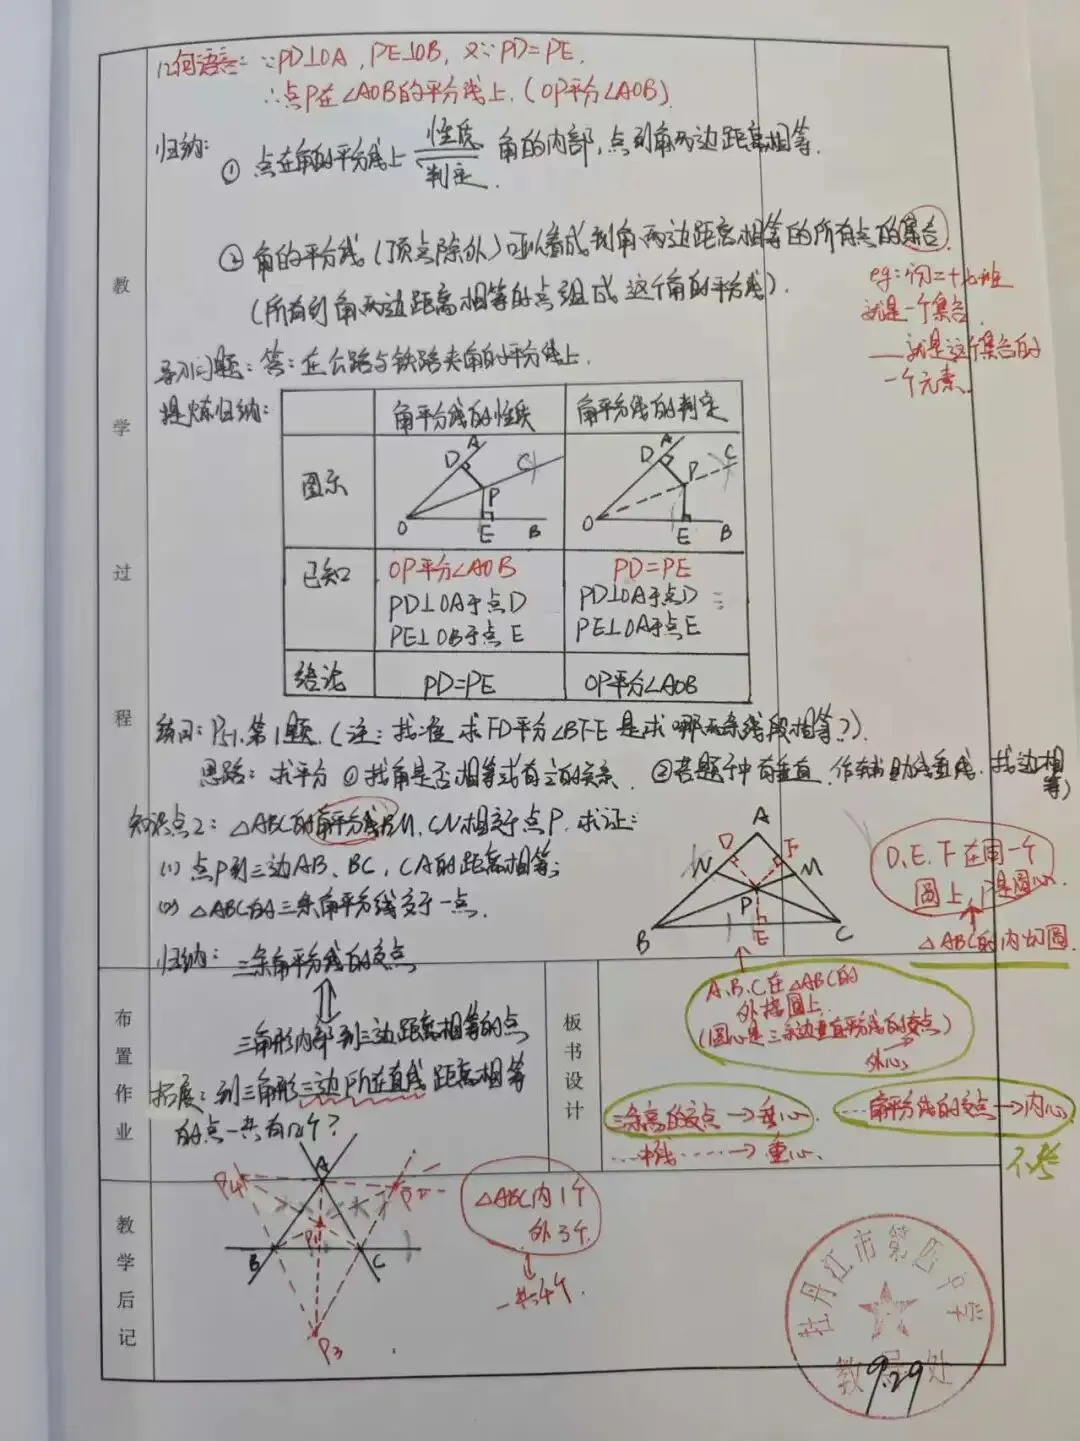 几何语言: ∵PD⊥OA, PE⊥OB, 又∵PD=PE,
∴点P在∠AOB的平分线上.(OP平分∠AOB)
归纳:
① 点在角的平分线上 性质 判定 角的内部,点到角两边距离相等.
② 角的平分线(顶点除外)可以看成到角两边距离相等的所有点的集合.
(所有到角两边距离相等的点组成这个角的平分线).
eg: 初二十七班
就是一个集合
——就是这个集合的
一个元素.
导入问题: 答: 在公路与铁路夹角的平分线上.
提炼归纳:
角平分线的性质 角平分线的判定
图示
A D C P O E B
A D C P O E B
已知
OP平分∠AOB
PD⊥OA于点D
PE⊥OB于点E
PD=PE
PD⊥OA于点D
PE⊥OA于点E
结论 PD=PE OP平分∠AOB
练习: P51.第1题.(注: 找准 求FD平分∠BFE 是求哪两条线段相等?).
思路: 求平分 ①找角是否相等或有2倍关系. ②若题中有垂直,作辅助线垂线.找边相等)
知识点2: △ABC的角平分线BM, CN相交于点P. 求证:
(1) 点P到三边AB、BC, CA的距离相等;
(2) △ABC的三条角平分线交于一点.
A D F N M P B E C
D、E、F在同一个
圆上 P是圆心.
△ABC的内切圆.
归纳: 三条角平分线的交点
三角形内部到三边距离相等的点
A.B.C在△ABC的
外接圆上.
(圆心是三条边垂直平分线的交点)
外心
拓展: 到三角形三边所在直线距离相等
的点一共有几个?
三条高的交点→垂心.
……中线……→重心.
……角平分线的交点→内心
不考
A P4 P2 P1 B C P3
△ABC内1个
外3个.
一共4个.
教学过程
布置作业
板书设计
教学后记
牡丹江市第四中学
教导处
9.29